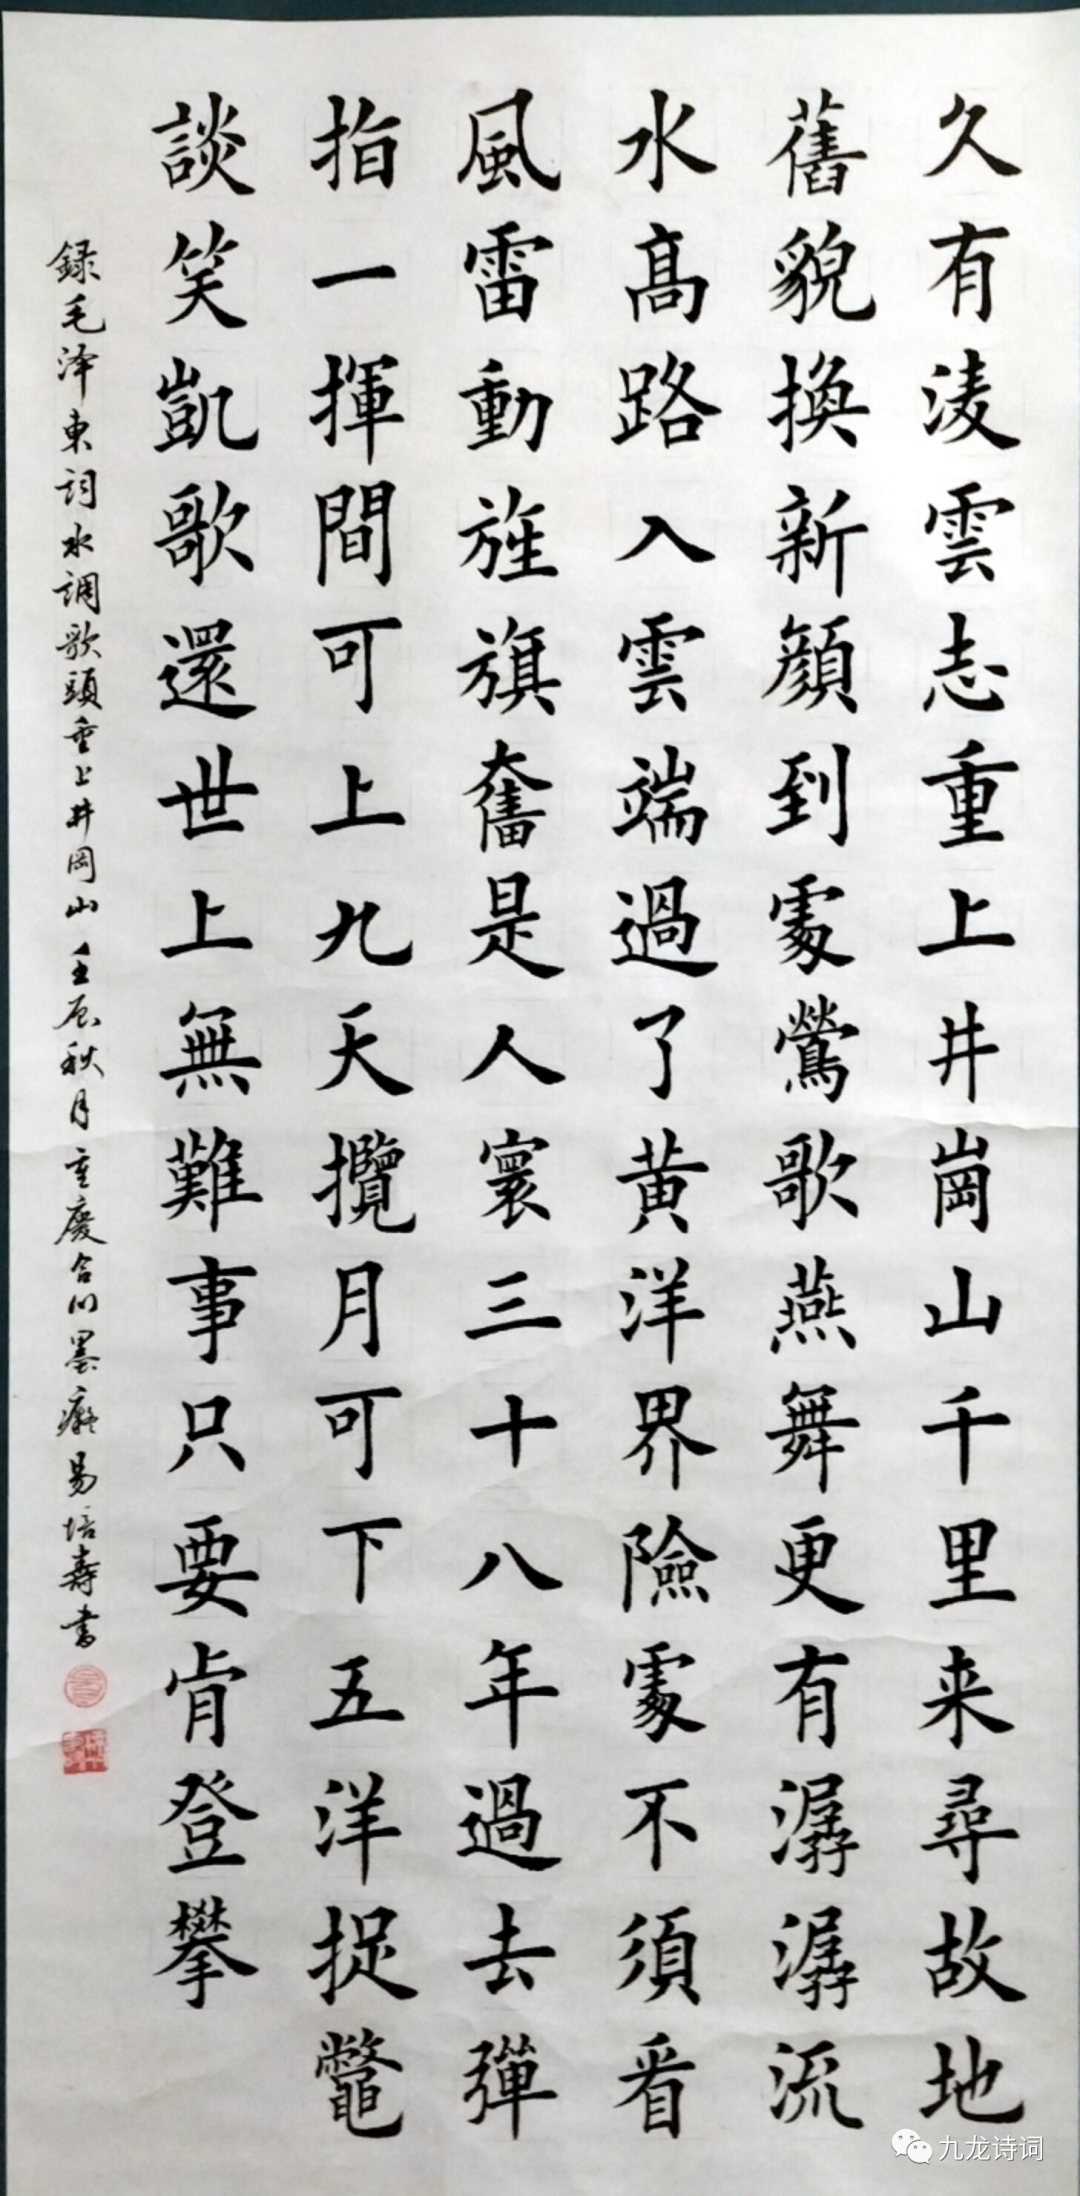 久有淩雲志重上井崗山千里来尋故地
舊貌換新顔到處鶯歌燕舞更有潺潺流
水高路入雲端過了黄洋界險處不須看
風雷動旌旗奮是人寰三十八年過去彈
指一揮間可上九天攬月可下五洋捉鼈
談笑凱歌還世上無難事只要肯登攀
録毛泽東词水调歌頭重上井岡山壬辰秋月重慶合川墨癡易培壽書
九龙诗词